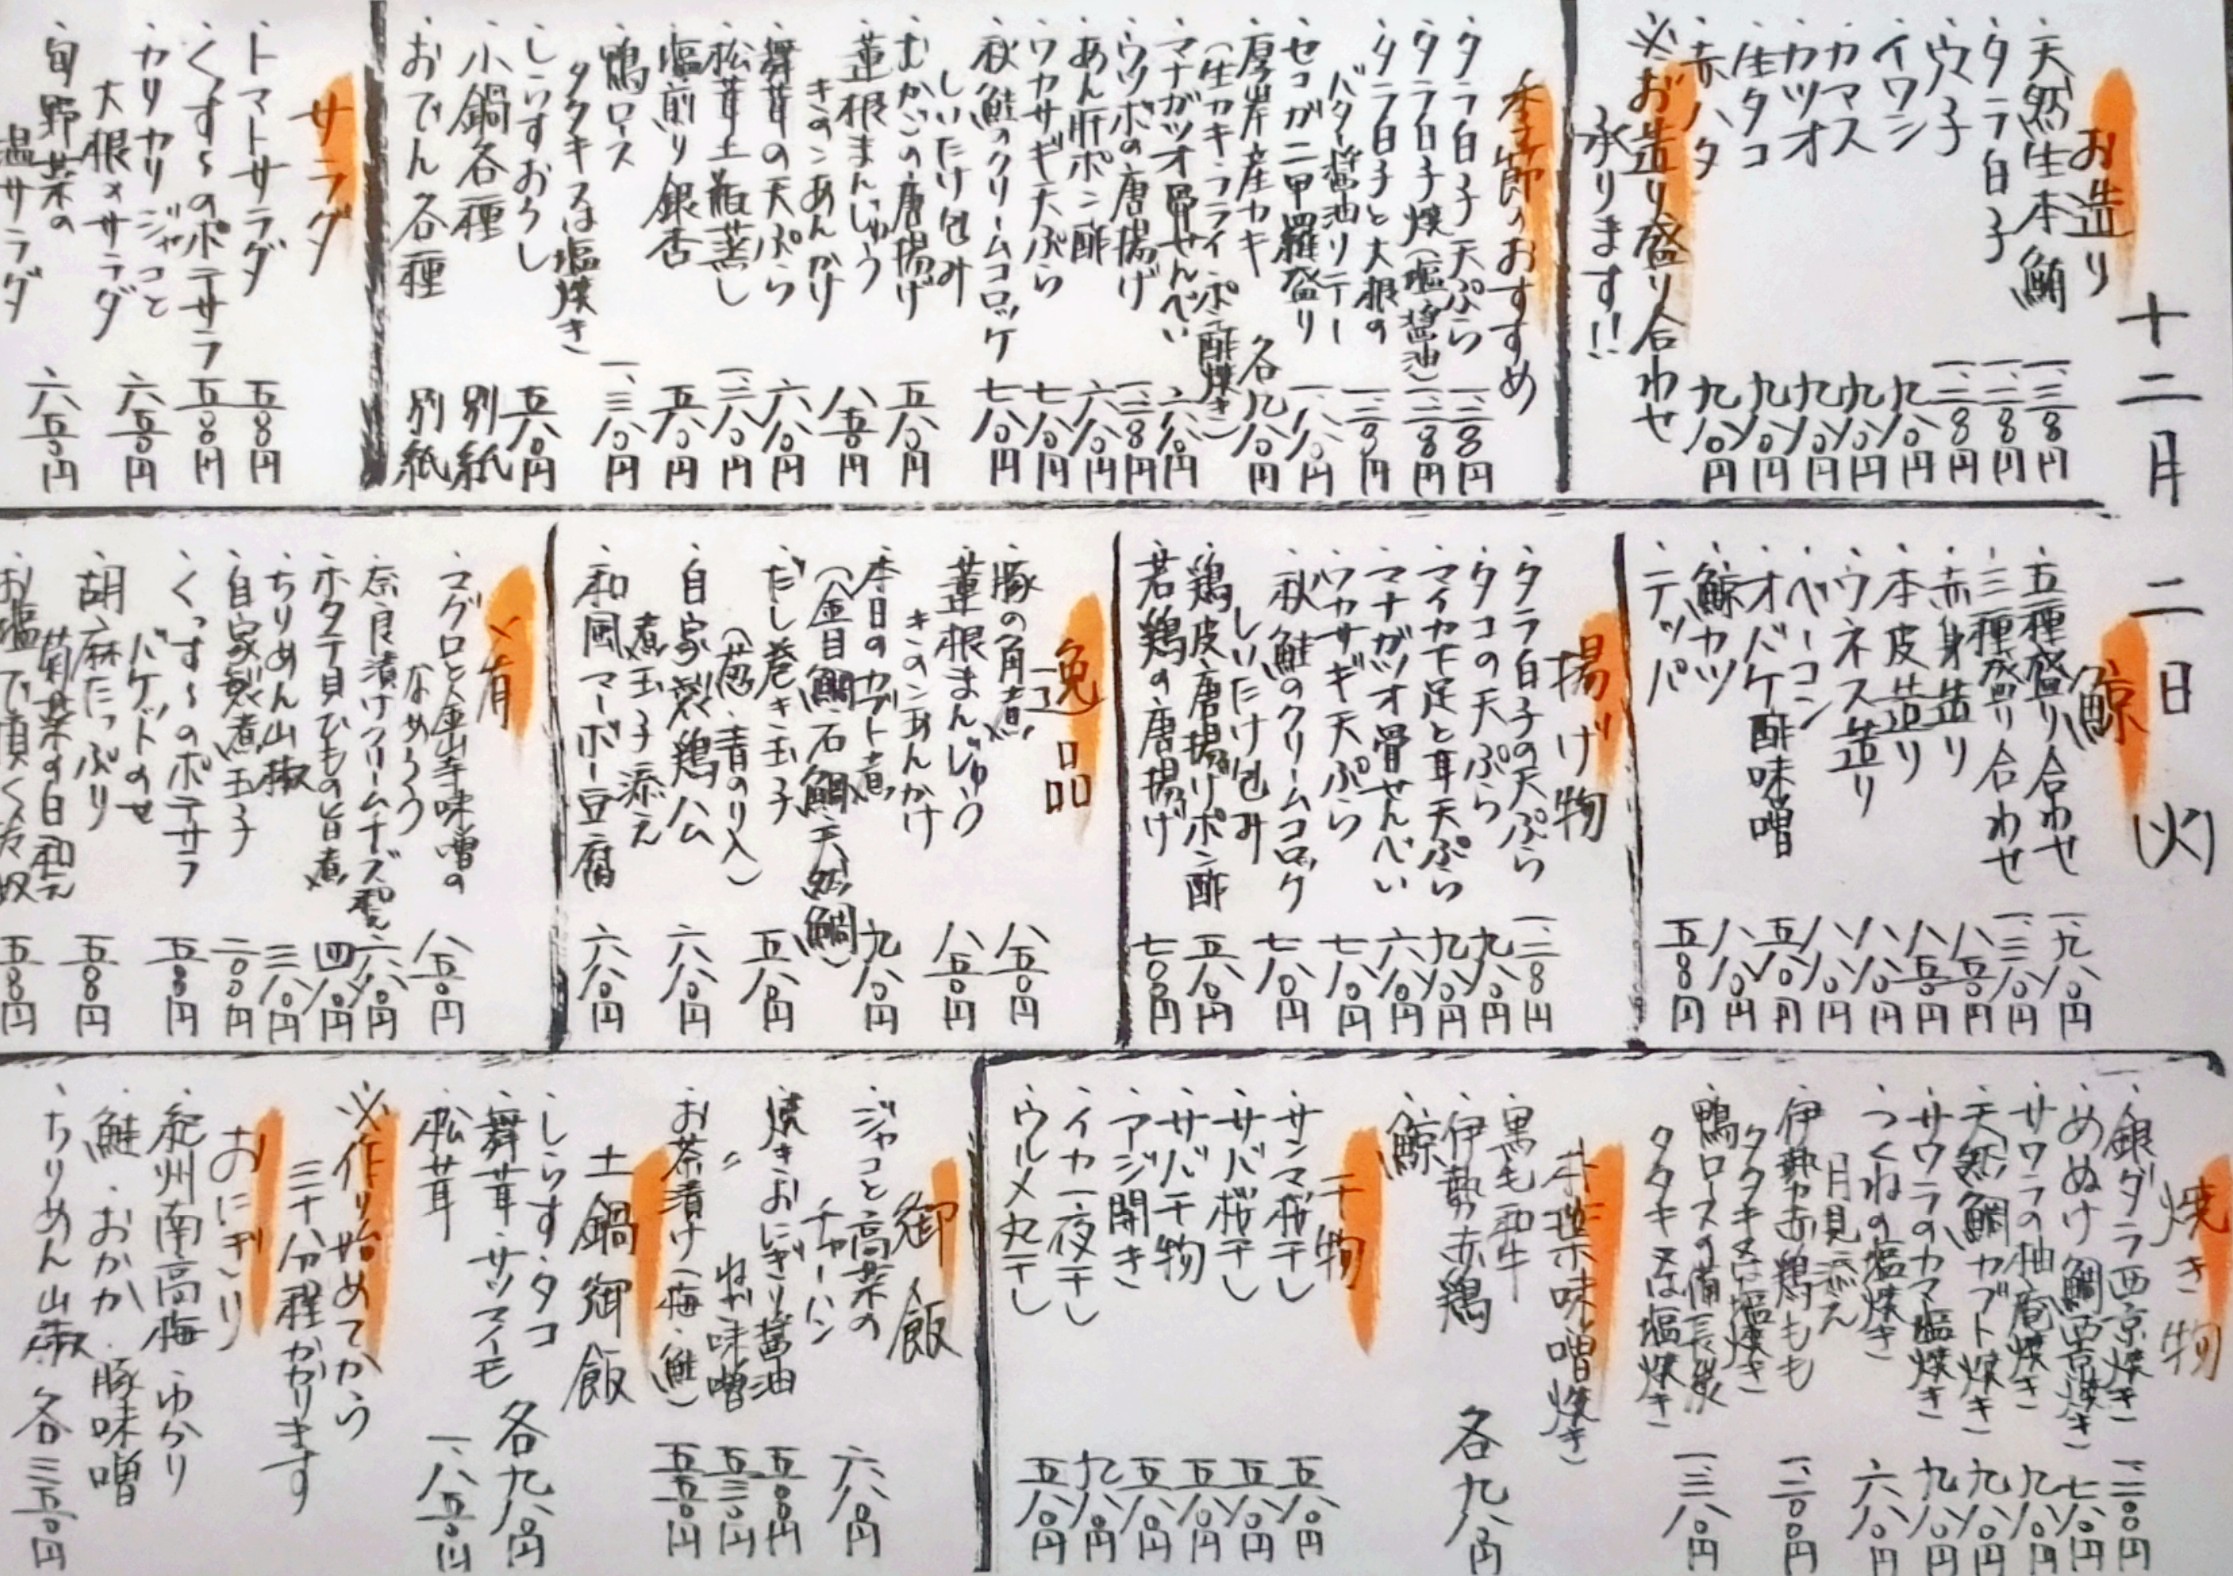 十二月二日(火)
お造り
・天然生本鮪 一、三〇〇円
・タラ白子 一、二〇〇円
・穴子 一、二〇〇円
・イワシ 九八〇円
・カマス 九八〇円
・カツオ 九八〇円
・生タコ 九八〇円
・赤ハタ 九八〇円
※お造り盛り合わせ
承ります!!
季節のおすすめ
・タラ白子天ぷら 一、二〇〇円
・タラ白子焼(塩・醤油) 一、二〇〇円
・タラ白子と大根の
バター醤油ソテー 一、三〇〇円
・セコガニ甲羅盛り 一、八八〇円
・厚岸産カキ
(生カキ・フライ・ポン酢・焼き) 各九八〇円
・マナガツオ骨せんべい 六八〇円
・ウツボの唐揚げ
・あん肝ポン酢 六八〇円
・ワカサギ天ぷら 七八〇円
・秋鮭のクリームコロッケ
しいたけ包み 七八〇円
・むかごの唐揚げ 五八〇円
・蓮根まんじゅう
きのこあんかけ 八五〇円
・舞茸の天ぷら 六八〇円
・松茸土瓶蒸し 一、二八〇円
・塩煎り銀杏 五八〇円
・鴨ロース
タタキ又は塩焼き 一、三八〇円
・しらすおろし 五八〇円
・小鍋各種 別紙
・おでん各種 別紙
サラダ
・トマトサラダ 五〇〇円
・くっす〜のポテサラ 五〇〇円
・カリカリジャコと
大根のサラダ 六五〇円
・旬野菜の
温サラダ 六五〇円
鯨
・五種盛り合わせ 一、九八〇円
・三種盛り合わせ 一、三八〇円
・赤身造り 八五〇円
・本皮造り 八五〇円
・ウネス造り 八八〇円
・ベーコン 八八〇円
・オバケ酢味噌 五八〇円
・鯨カツ 八八〇円
・テッパ 五〇〇円
揚げ物
・タラ白子の天ぷら 一、二〇〇円
・タコの天ぷら 九八〇円
・マイカ下足と耳天ぷら 九八〇円
・マナガツオ骨せんべい 六八〇円
・ワカサギ天ぷら 七八〇円
・秋鮭のクリームコロッケ
しいたけ包み 七八〇円
・鶏皮唐揚げポン酢 五八〇円
・若鶏の唐揚げ 七〇〇円
逸品
・豚の角煮 八五〇円
・蓮根まんじゅう
きのこあんかけ 八五〇円
・本日のカブト煮
(金目鯛・石鯛・天然鯛) 九八〇円
・だし巻き玉子
(葱・青のり入) 五八〇円
・自家製鶏ハム
煮玉子添え 六八〇円
・和風マーボー豆腐 六八〇円
〆肴
・マグロと金山寺味噌の
なめろう 八五〇円
・奈良漬けクリームチーズ和え 六八〇円
・ホタテ貝ひもの旨煮 四八〇円
・ちりめん山椒 三八〇円
・自家製煮玉子 二〇〇円
・くっす〜のポテサラ
バゲットのせ 五〇〇円
・胡麻たっぷり
菊菜の白和え 五〇〇円
・お塩で頂く冷奴 五〇〇円
焼き物
・銀ダラ西京焼き 一、二〇〇円
・めぬけ鯛西京焼き 七八〇円
・サワラの柚庵焼き 九八〇円
・天然鯛カブト焼き 九八〇円
・サワラのカマ塩焼き 九八〇円
・つくねの塩焼き
月見添え 六八〇円
・伊勢赤鶏もも
タタキ又は塩焼き 一、二〇〇円
・鴨ロースの備長炭
タタキ又は塩焼き 一、三八〇円
味噌焼き
・黒毛和牛
・伊勢赤鶏
・鯨 各九八〇円
干物
・サンマ桜干し 五八〇円
・サバ桜干し 五八〇円
・サバ干物 五八〇円
・アジ開き 五八〇円
・イカ一夜干し 九八〇円
・ウルメ丸干し 五八〇円
御飯
・ジャコと高菜の
チャーハン 六八〇円
・焼きおにぎり醤油 五〇〇円
〃 ねぎ味噌 五三〇円
・お茶漬け(梅・鮭) 五五〇円
土鍋御飯
・しらす・タコ
・舞茸・サツマイモ 各九八〇円
・松茸 一、八五〇円
※作り始めてから
三十分程かかります
おにぎり
・紀州南高梅・ゆかり
・鮭・おかか・豚味噌
・ちりめん山椒 各三五〇円